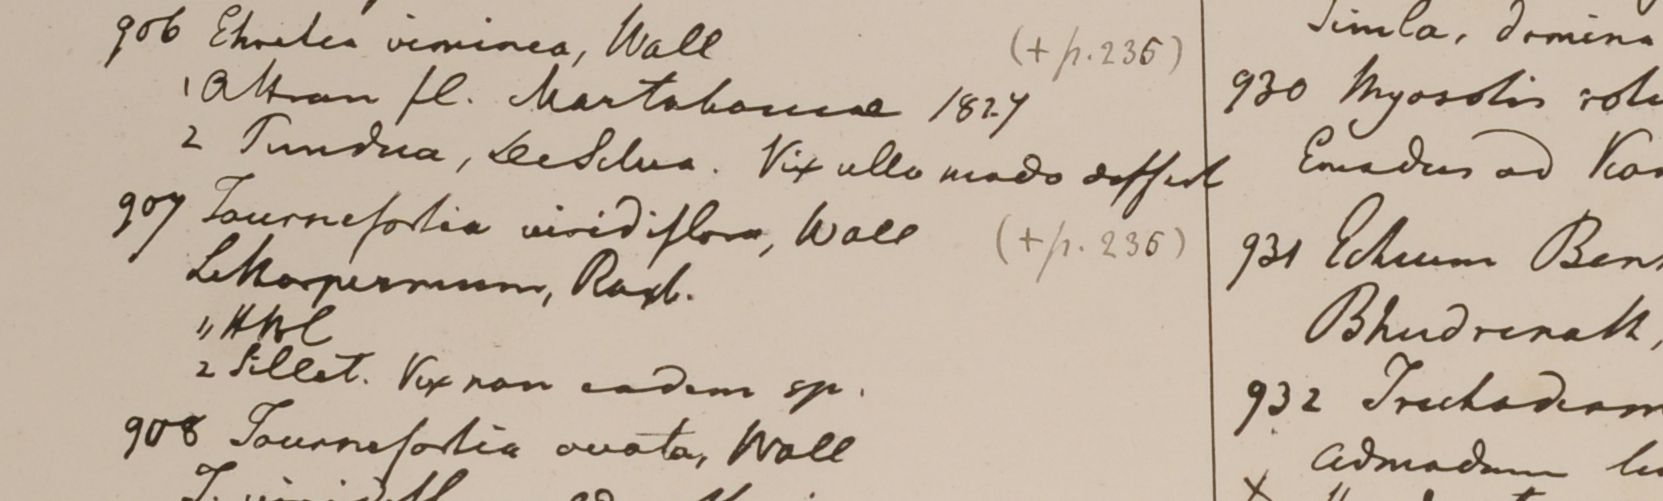 906 Ehretia viminea, Wall (+ p. 236)
1 Attran fl. Martabaniae 1827
2 Tundua, DeSilva. Vix ullo modo differt
907 Tournefortia viridiflora, Wall (+ p. 236)
Lithospermum, Roxb.
1, HBC
2 Sillet. Vix non eadem sp.
908 Tournefortia ovata, Wall
T.
Simla, domina
930 Myosotis
ad
931 Echium
Bhudrenath,
932 Trichodesm
admodum